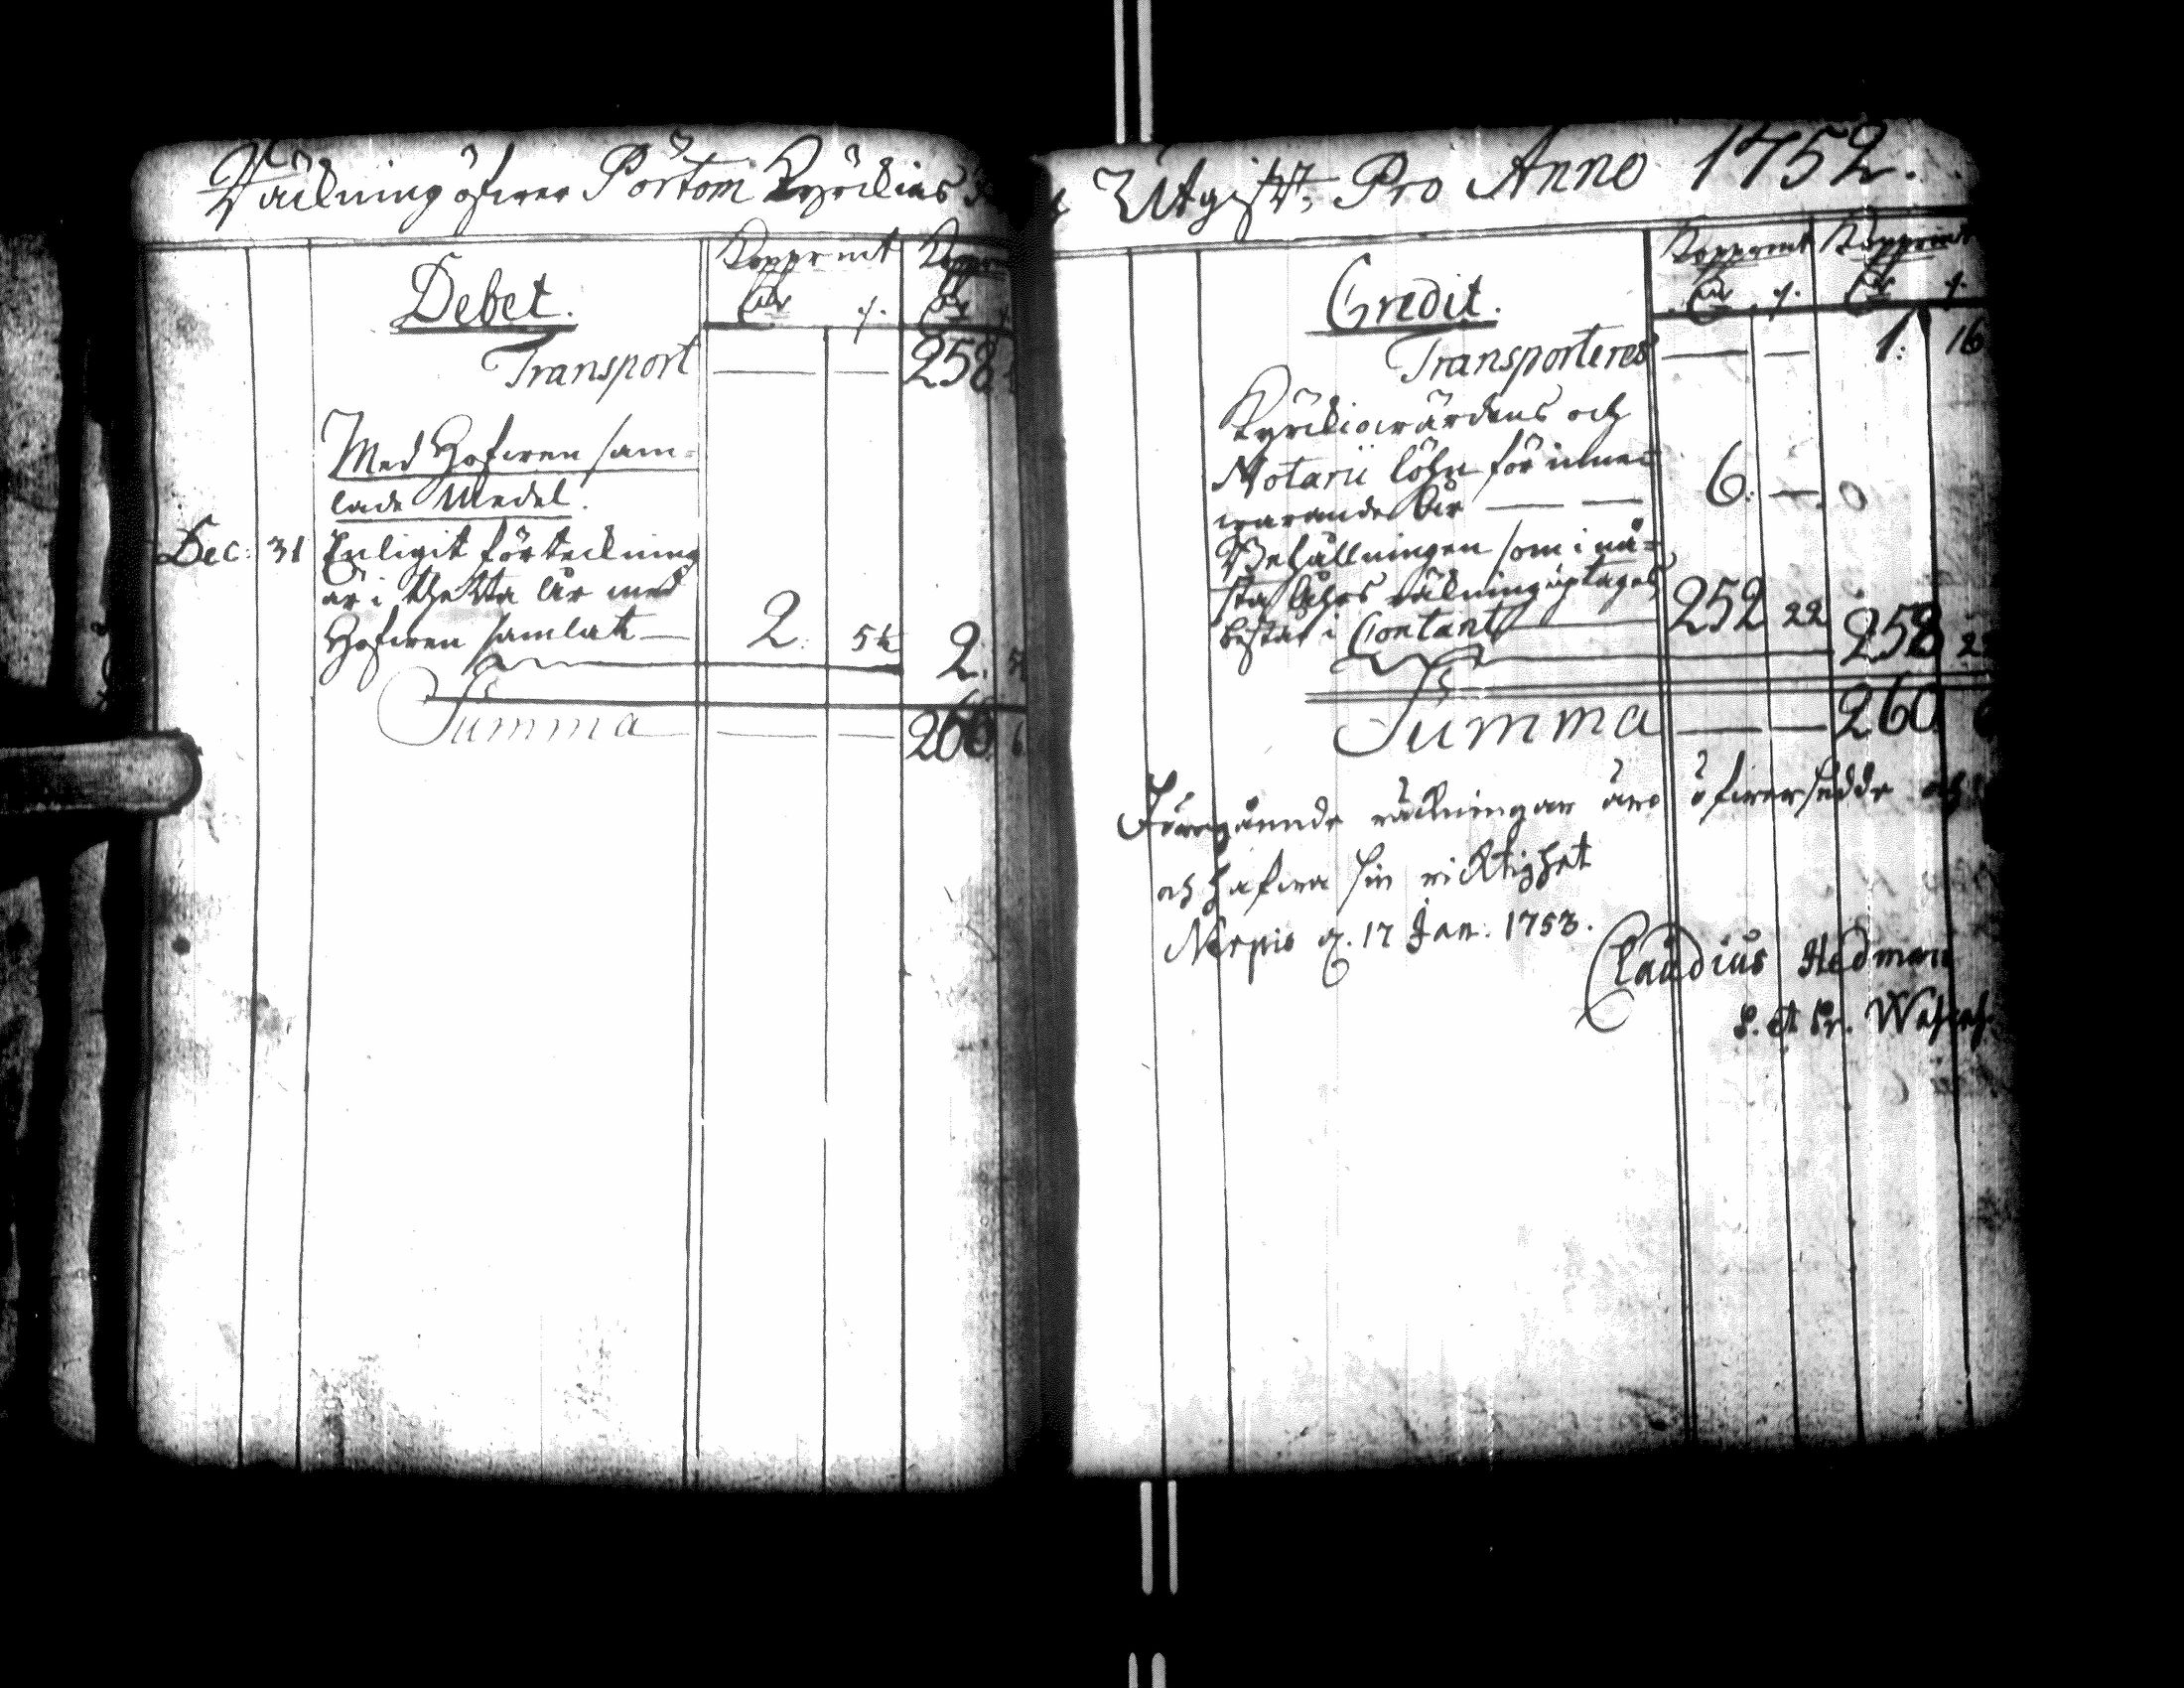 Räckning öfwer Pörtom Kyrckias
Utgifft, Pro Anno 1752.
Debet.
Kopp:mt
Dlr
Transport — — 258
Med Hofwen sam=
lade Medel.
Dec: 31 Enligit förteckning
är i thetta år med
Hofwen samlat — 2. 5 2.
Summa — — 260. 6
Credit.
Kopp:mt Kopp:mt
Dlr Dlr
Transporteres — — 1: 16
Kyrckiowärdens och
Notarii löhn för inne=
warande år — — 6. —
Behållningen som i nä=
sta åhrs räckning uptages
består i Contant 252 22 258 22
Summa — — 260 6
Föregåennde räckningar äro öfwersedde och
och hafwa sin richtighet
Nerpis d. 17 Jan: 1753.
Claudius Hedman
P. et Pr.